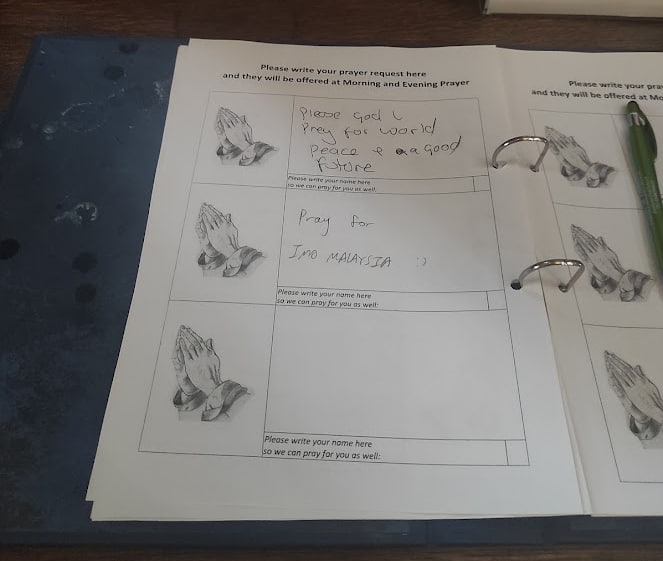 Please write your prayer request here
and they will be offered at Morning and Evening Prayer
Please God I
Pray for world
Peace & a good
future
Please write your name here
so we can pray for you as well:
Pray for
IMO MALAYSIA :)
Please write your name here
so we can pray for you as well:
Please write your name here
so we can pray for you as well:
Please write your pra
and they will be offered at Mo